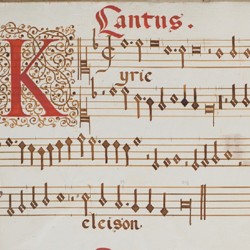 Cantus.
K yrie
eleison.